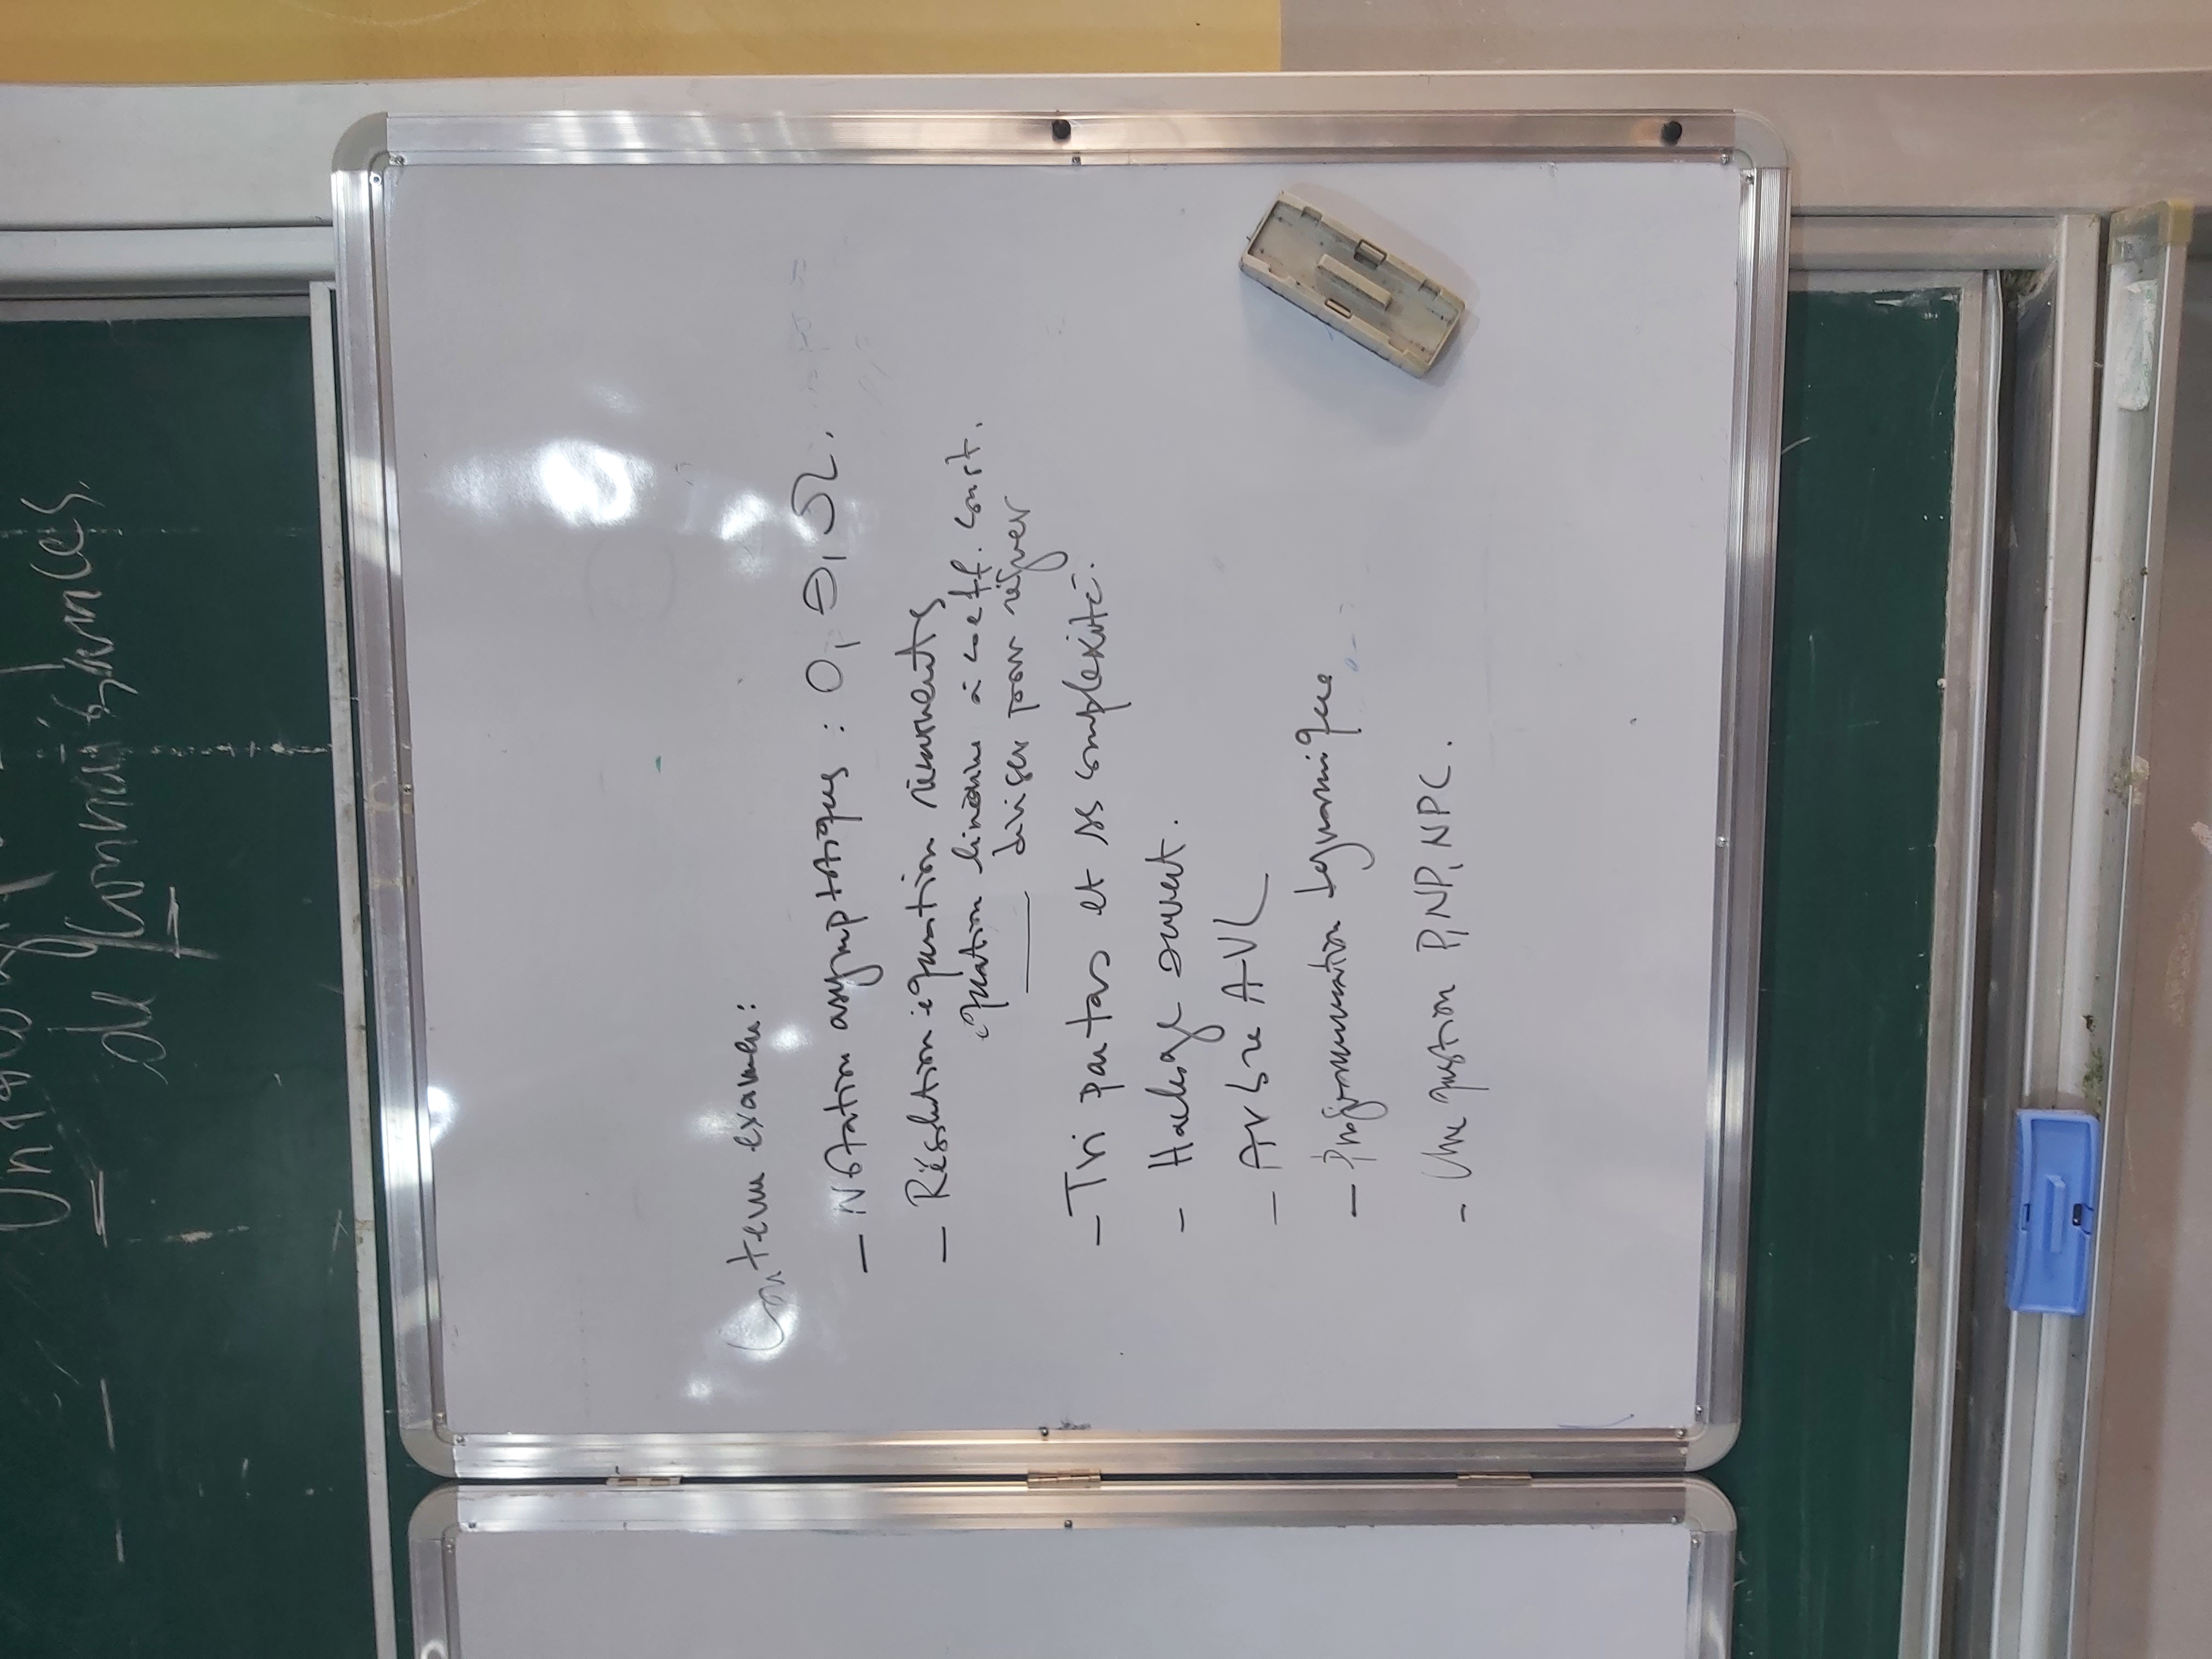 de connaissances.
Contenu examen:
- Notation asymptotiques : O, Θ, Ω.
- Résolution équation récurrents
équation linéaire à coeff. const.
—— diviser pour régner
- Tri par tas et sa complexité.
- Hachage ouvert.
- Arbre AVL
- Programmation dynamique
- Une question P, NP, NPC.